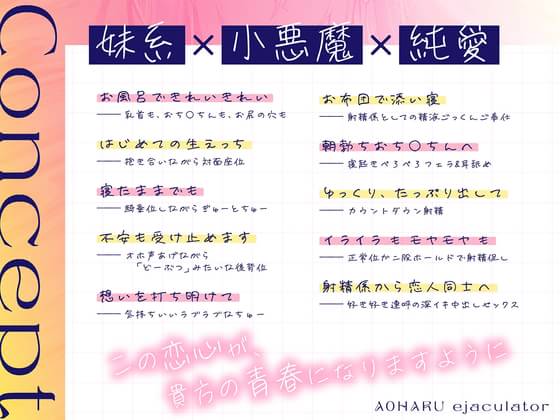 Concept
妹系×小悪魔×純愛
お風呂できれいきれい
乳首も、おち〇ちんも、お尻の穴も
はじめての生えっち
抱き合いながら対面座位
寝たままでも
騎乗位しながらぎゅーとちゅー
不安も受け止めます
オホ声あげながら
「どーぶつ」みたいな後背位
想いを打ち明けて
気持ちいいラブラブなちゅー
お布団で添い寝
射精係としての精液ごっくんご奉仕
朝勃ちおち〇ちんへ
寝起きぺろぺろフェラ&耳舐め
ゆっくり、たっぷり出して
カウントダウン射精
イライラもモヤモヤも
正常位から二段ホールドで射精促し
射精係から恋人同士へ
好き好き連呼の深イキ中出しセックス
この恋心が、
貴方の青春になりますように
AOHARU ejaculator